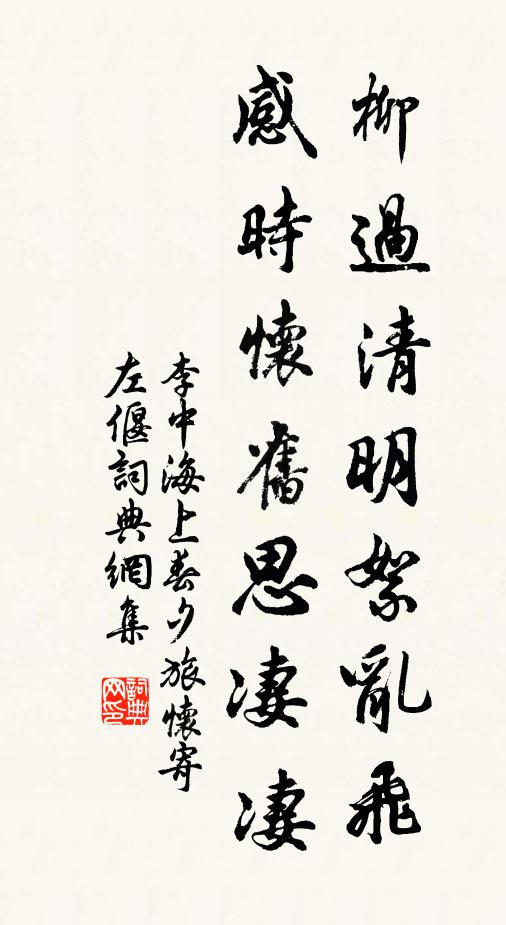 柳過清明絮亂飛
感時懷舊思凄凄
李中海上春夕旅懷寄
左偃詞典網集
詞典
网印